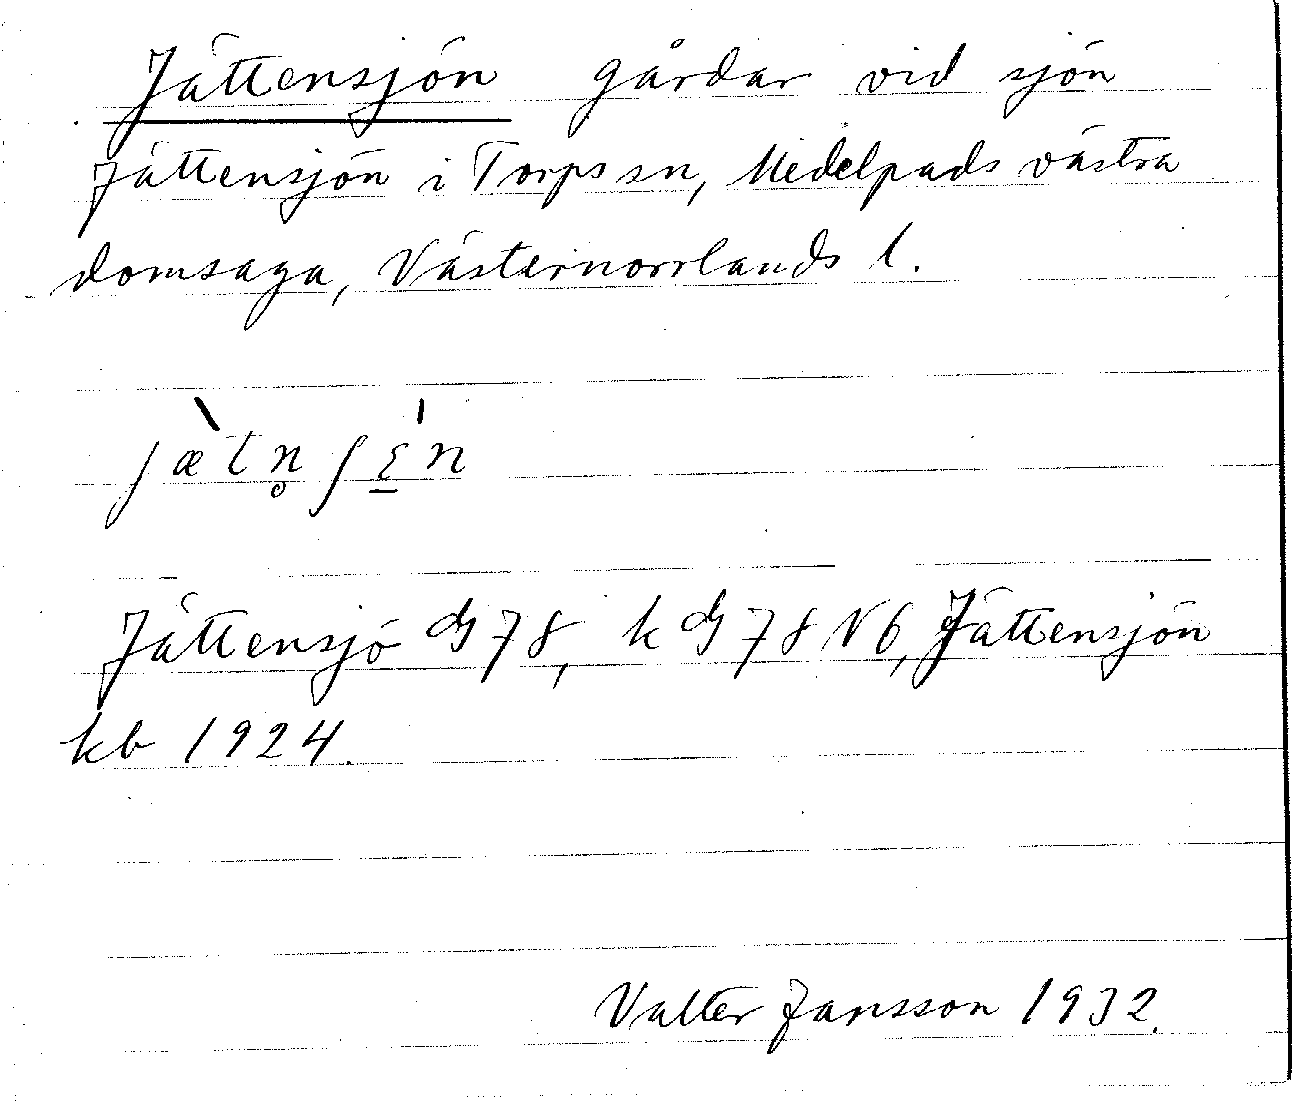 Jättensjön gårdar vid sjön
Jättensjön i Torps sn, Medelpads västra
domsaga, Västernorrlands l.
jæ̀tn̥ ʃɛ̱́n
Jättensjö G 78, k G 78 V6, Jättensjön
kb 1924.
Valter Jansson 1932.